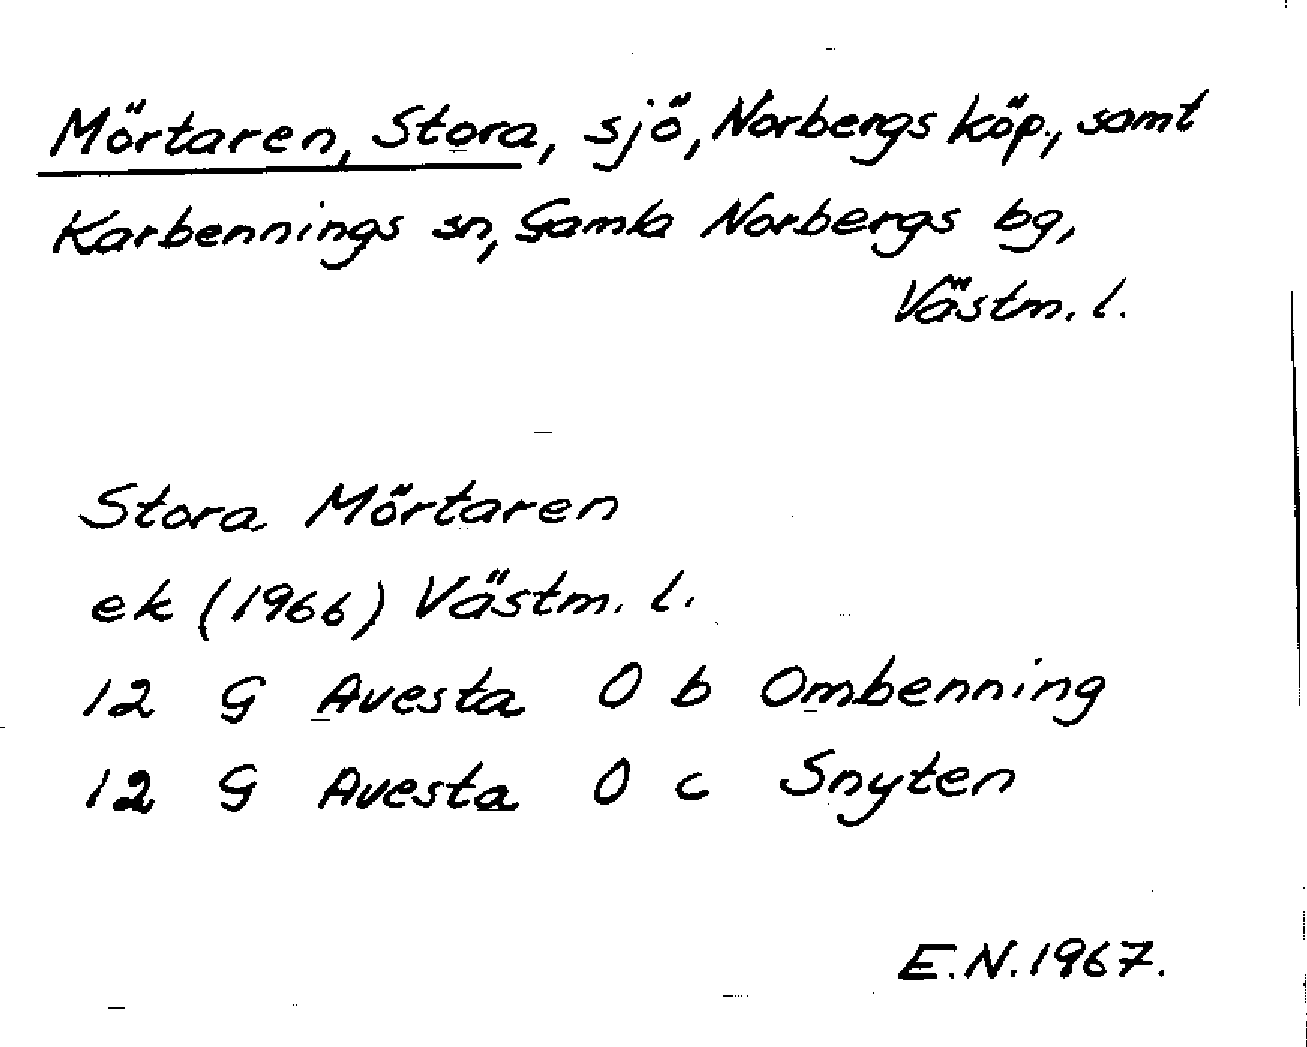 Mörtaren, Stora, sjö, Norbergs köp., samt
Karbennings sn, Gamla Norbergs bg,
Västm. l.
Stora Mörtaren
ek (1966) Västm. l.
12 G Avesta 0 b Ombenning
12 G Avesta 0 c Snyten
E.N. 1967.